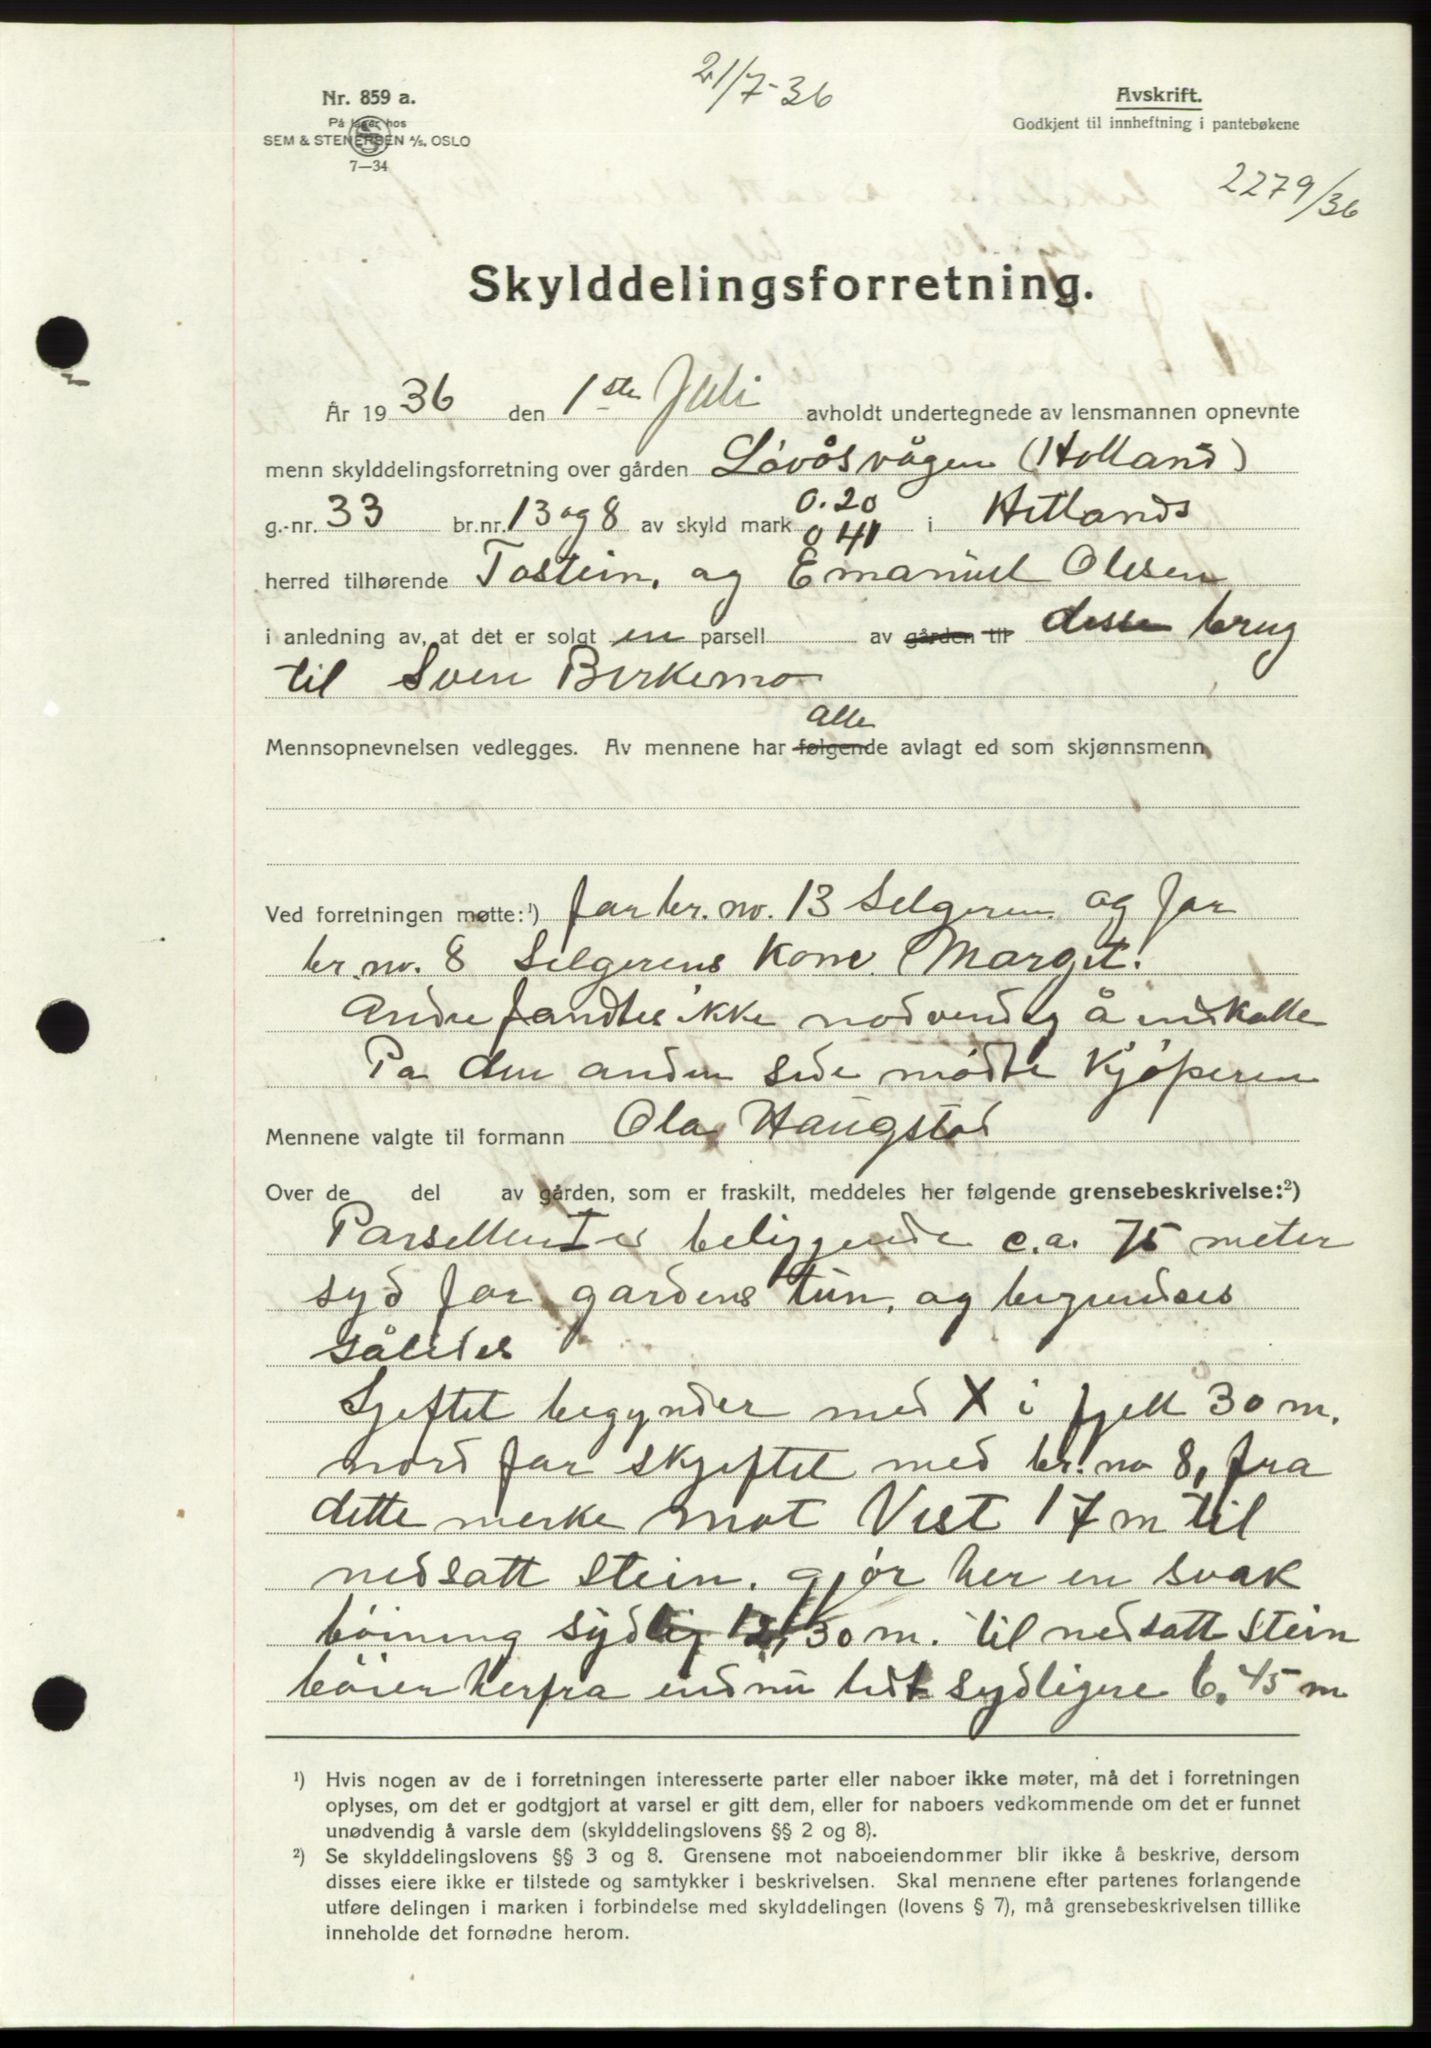 21/7-36
Nr. 859 a.
På lager hos
SEM & STENERSEN A/S, OSLO
7—34
Avskrift.
Godkjent til innheftning i pantebøkene
2279/36
Skylddelingsforretning.
År 1936 den 1ste Juli avholdt undertegnede av lensmannen opnevnte
menn skylddelingsforretning over gården Lóvåsvågen (Holland)
g.-nr. 33 br.nr. 13 og 8 av skyld mark 0.20 0 41 i Hetlands
herred tilhørende Tostein, og Emanuel Olsen
i anledning av, at det er solgt en parsell av gården til desse brug
til Sven Birkemo
Mennsopnevnelsen vedlegges. Av mennene har følgende alle avlagt ed som skjønnsmenn
Ved forretningen møtte:¹) for br. no. 13 Selgeren og for
br. no. 8 Selgerens Kone Margit.
Andre fandtes ikke nódvendig å indkalle
Pa den anden side mødte Kjóperen
Mennene valgte til formann Ola Haugstad
Over de del av gården, som er fraskilt, meddeles her følgende grensebeskrivelse:²)
Parsellen er beliggende c.a. 75 meter
syd for gardens tun, og begrendses
således
Sjeftet begynder med X i fjell 30 m.
nord for skjeftet med br. no 8, fra
dette merke mot Vest 17 m til
nedsatt stein. gjór her en svak
bóining sydlig 12,30 m. til nedsatt stein
bóier herfra endnu lidt sydligere 6,45 m
¹) Hvis nogen av de i forretningen interesserte parter eller naboer ikke møter, må det i forretningen
oplyses, om det er godtgjort at varsel er gitt dem, eller for naboers vedkommende om det er funnet
unødvendig å varsle dem (skylddelingslovens §§ 2 og 8).
²) Se skylddelingslovens §§ 3 og 8. Grensene mot naboeiendommer blir ikke å beskrive, dersom
disses eiere ikke er tilstede og samtykker i beskrivelsen. Skal mennene efter partenes forlangende
utføre delingen i marken i forbindelse med skylddelingen (lovens § 7), må grensebeskrivelsen tillike
inneholde det fornødne herom.